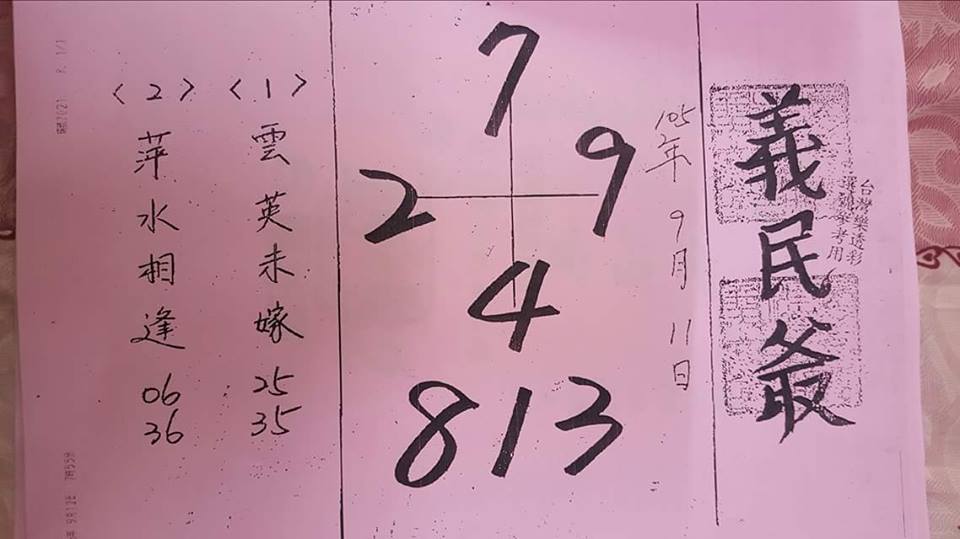 義民爺
台灣樂透彩
105年9月11日
7
2 9
4
813
<1>
雲英未嫁
25
35
<2>
萍水相逢
06
36